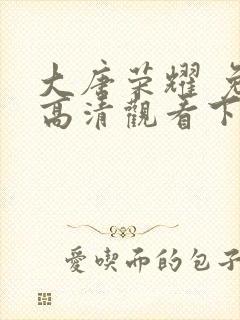 大唐荣耀 免
高清觀看下
愛喫而的包子